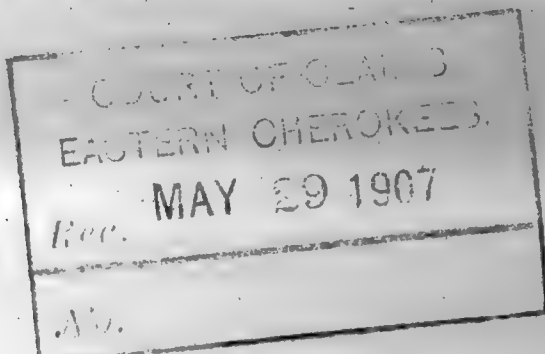 COURT OF CLAIMS
EASTERN CHEROKEES.
Rec. MAY 29 1907
No.